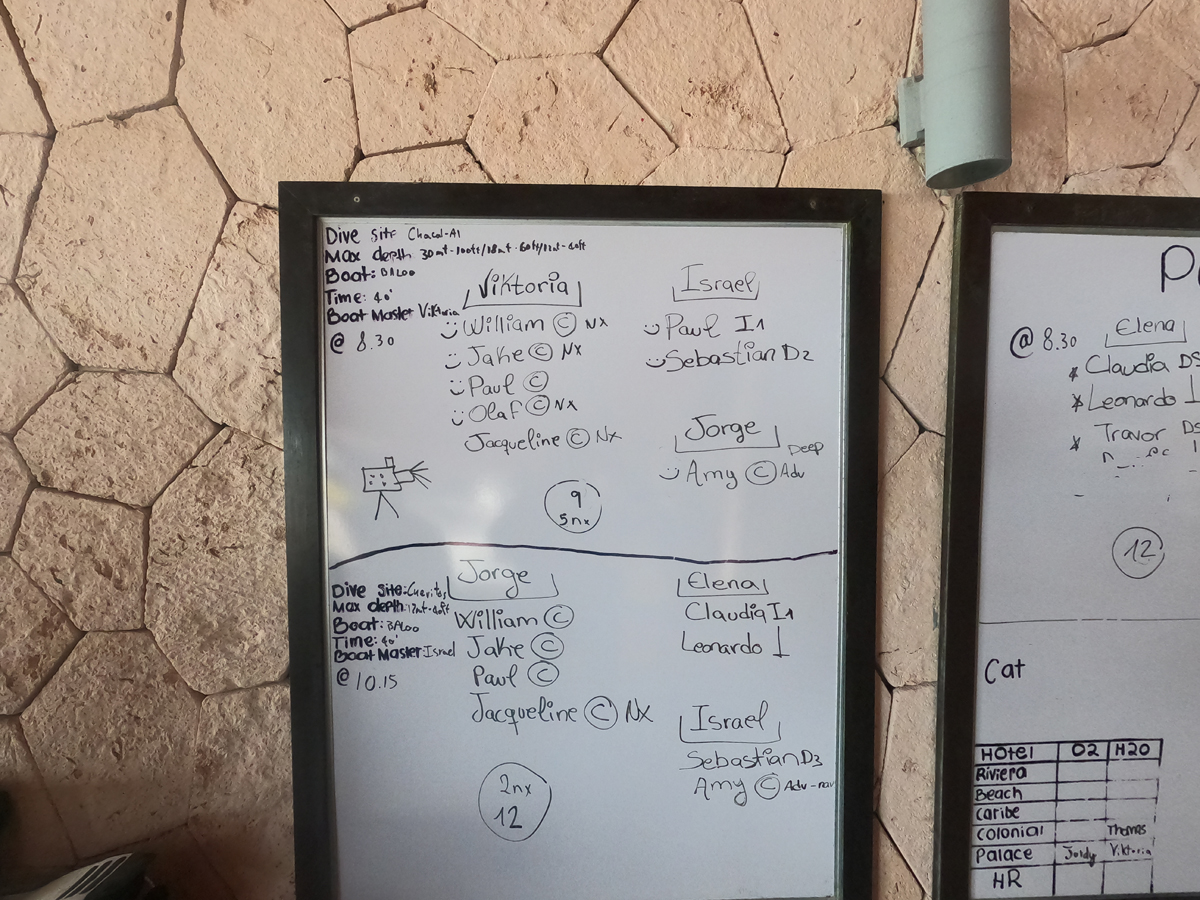 Dive site Chacal-A1
Max depth 30mt-100ft/18mt-60ft/12mt-40ft
Boat: BALOO
Time: 40'
Boat Master Viktoria
@ 8.30
Viktoria
William © Nx
Jake © Nx
Paul ©
Olaf © Nx
Jacqueline © Nx
Israel
Paul I1
Sebastian D2
Jorge
Deep
Amy © Adv
9
5nx
Dive site:
Max depth: 12mt-40ft
Boat: BALOO
Time: 40'
Boat Master: Israel
@ 10.15
Jorge
William ©
Jake ©
Paul ©
Jacqueline © Nx
2nx
12
Elena
Claudia I1
Leonardo I
Israel
Sebastian D3
Amy © Adv-nav
@ 8.30
Elena
Claudia DS
Leonardo I
Travor DS
12
Cat
Hotel O2 H2O
Riviera
Beach
Caribe
Colonial Thomas
Palace Jordy Viktoria
HR